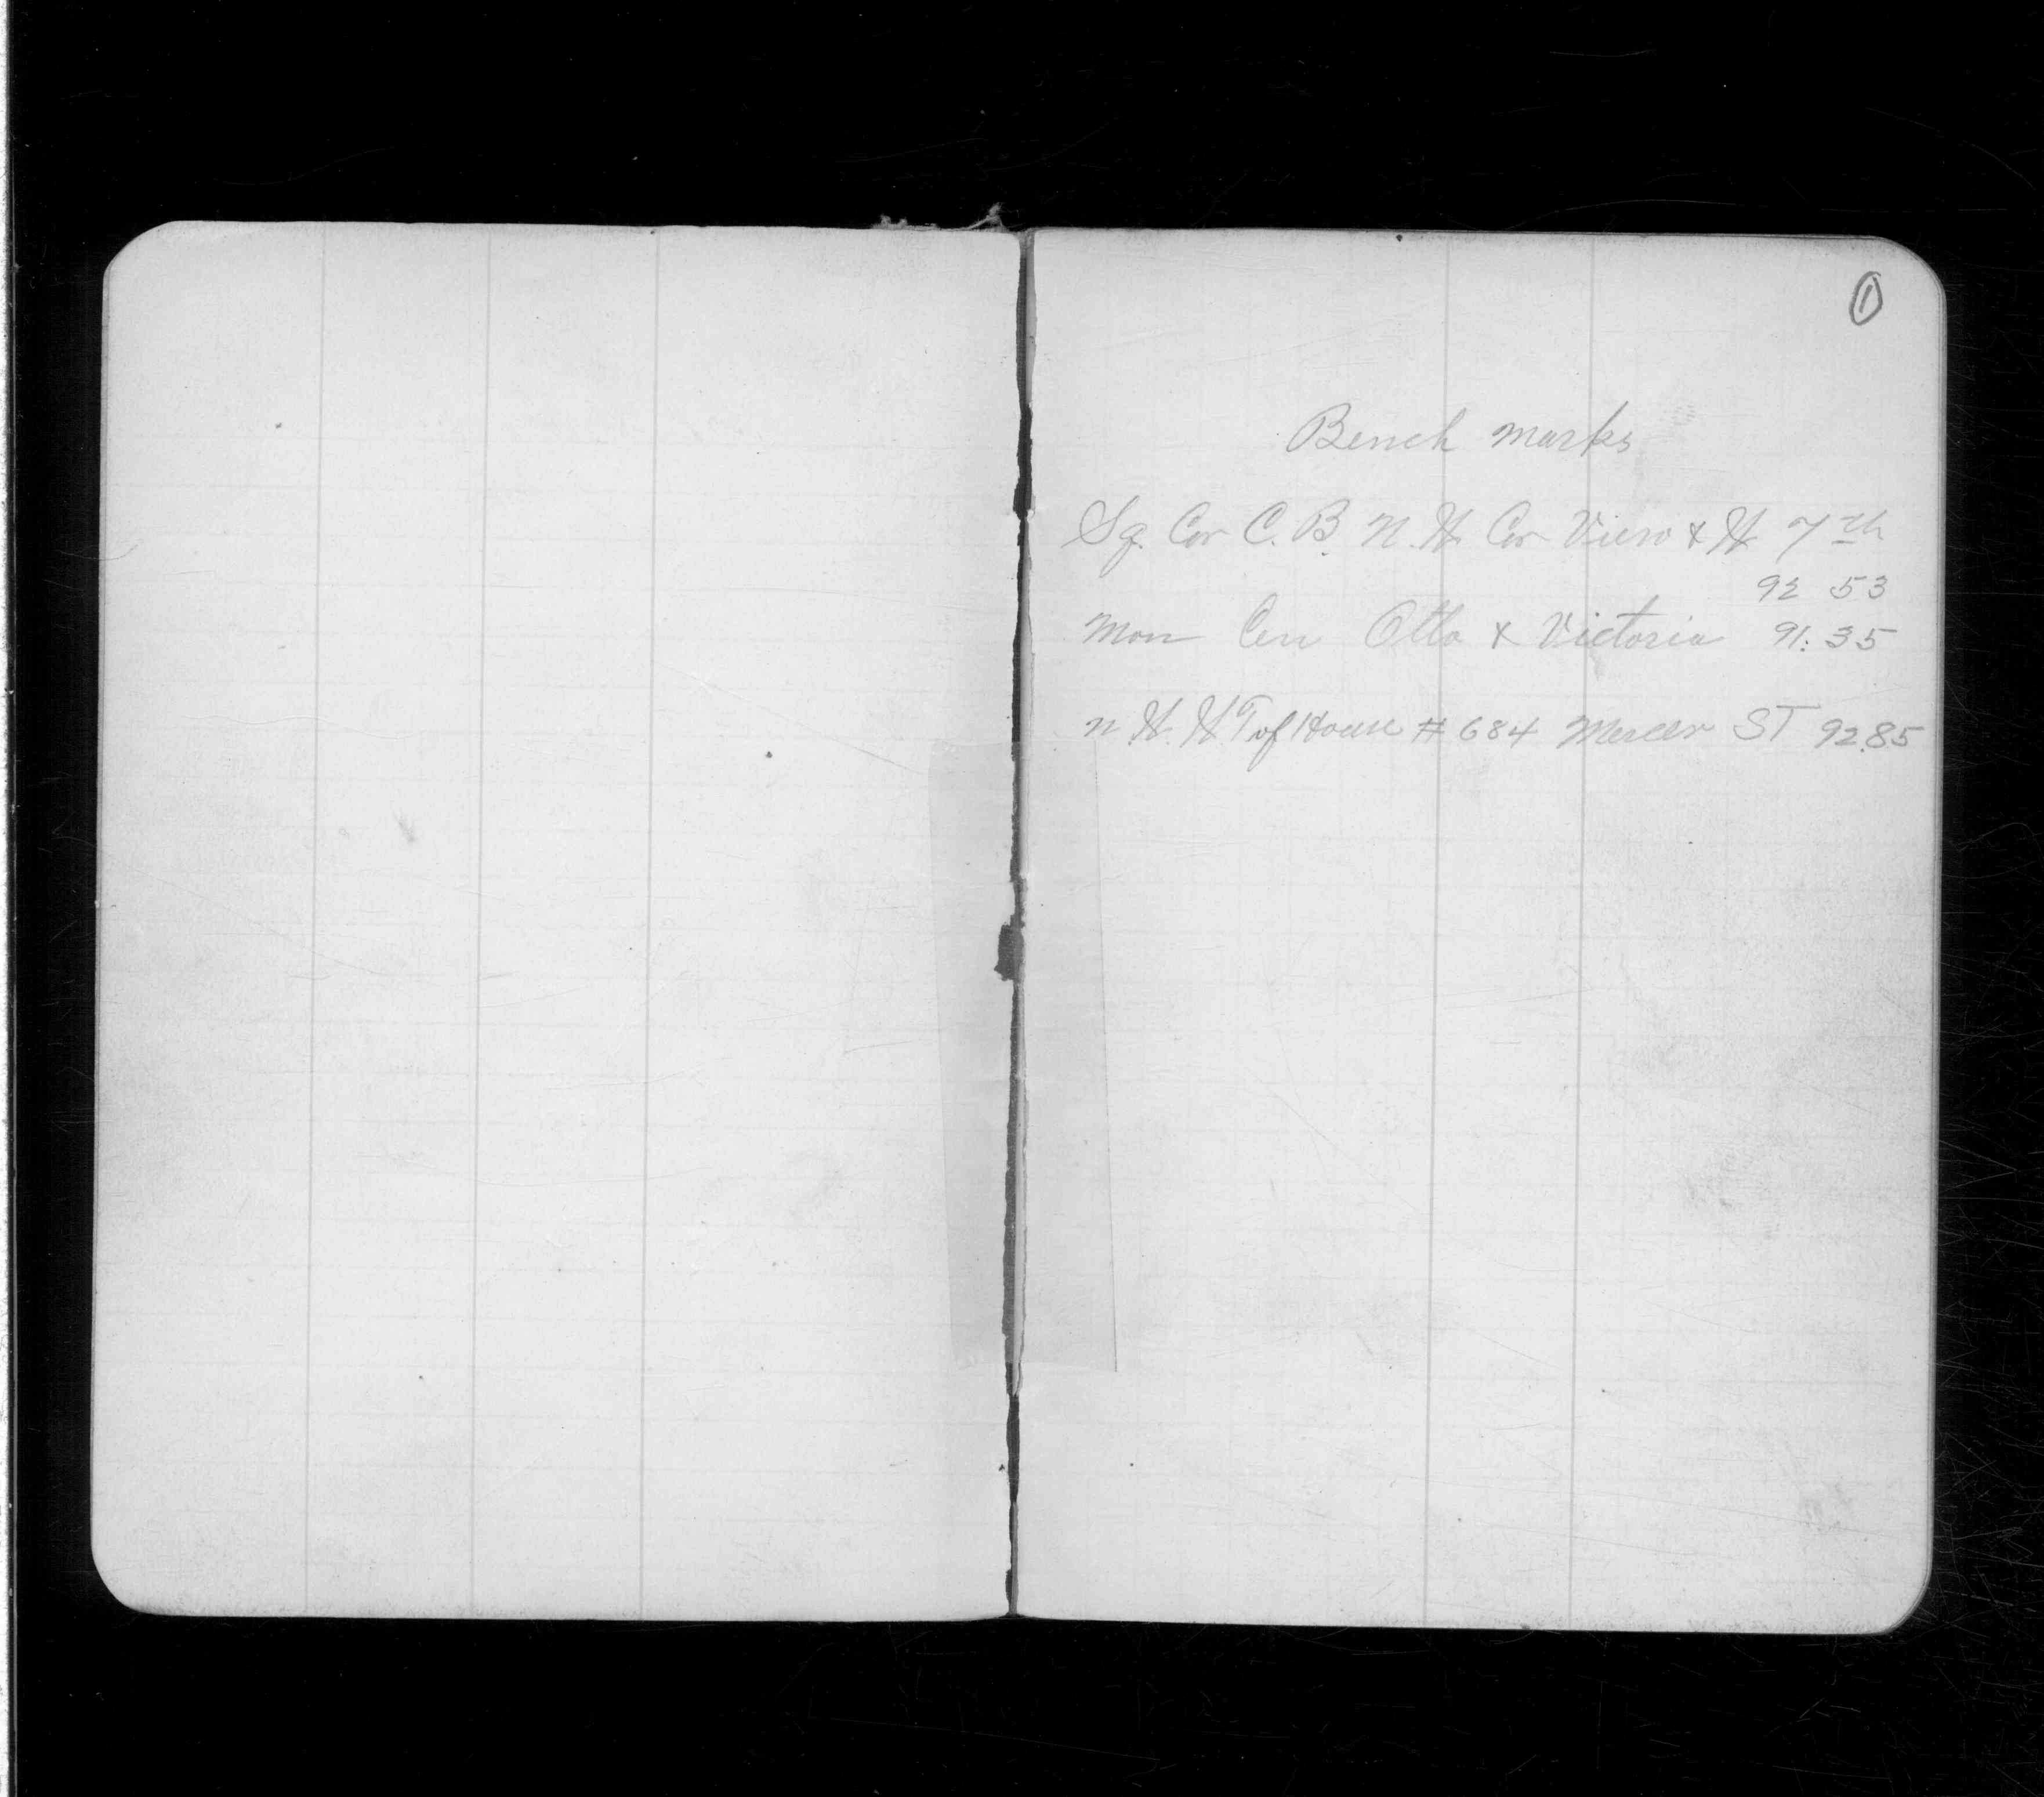 1
Bench marks
Sq. Cor C. B. N. W. Cor View & W 7th
92 53
Mon Cen Otto & Victoria 91.35
N. W. W.T of House # 684 Mercer ST 92.85